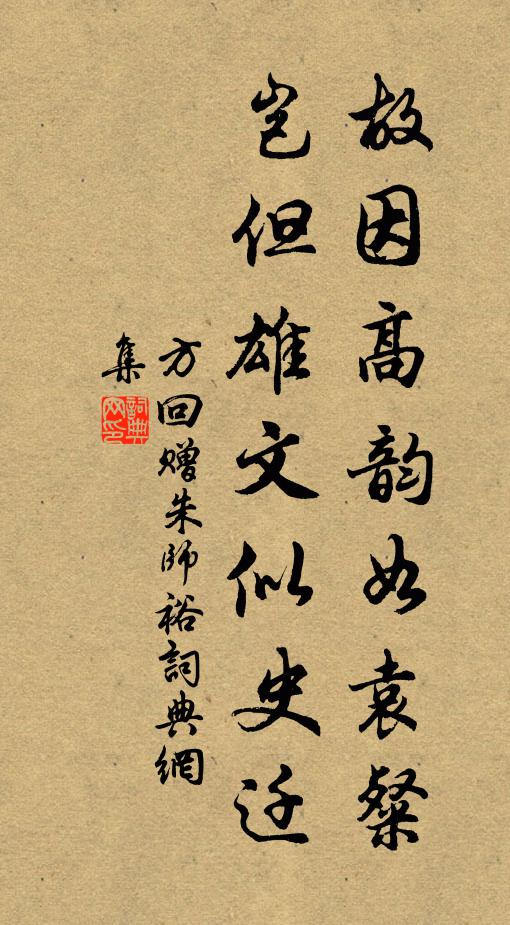 故因高韵如袁粲
岂但雄文似史迁
方回赠朱師裕詞典網
集
詞典网印